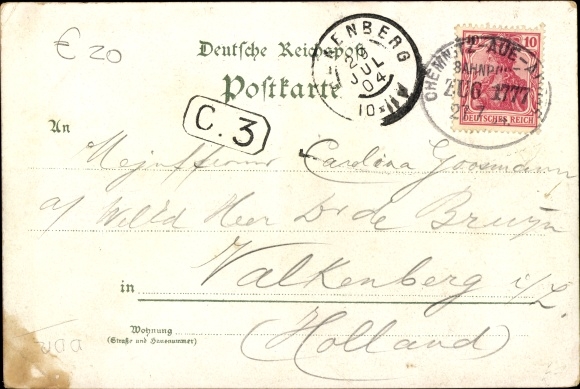 € 20
Deutsche Reichspost
Postkarte
ENBERG
JUL
04
10-11V
10
DEUTSCHES REICH
CHEMNITZ-AUE-A
BAHNPOST
ZUG 1777
C. 3
An
Mejufferouw Carolina Goosmann
a/ Wel Ed Heer Dr de Bruijn
in Valkenberg i/L.
Wohnung
(Straße und Hausnummer)
(Holland)
DDR